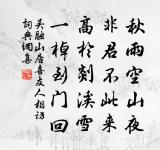 秋雨空山夜
非君不此來
高於剡溪雪
一棹到門回
吳融山居喜友人相訪
詞典網集